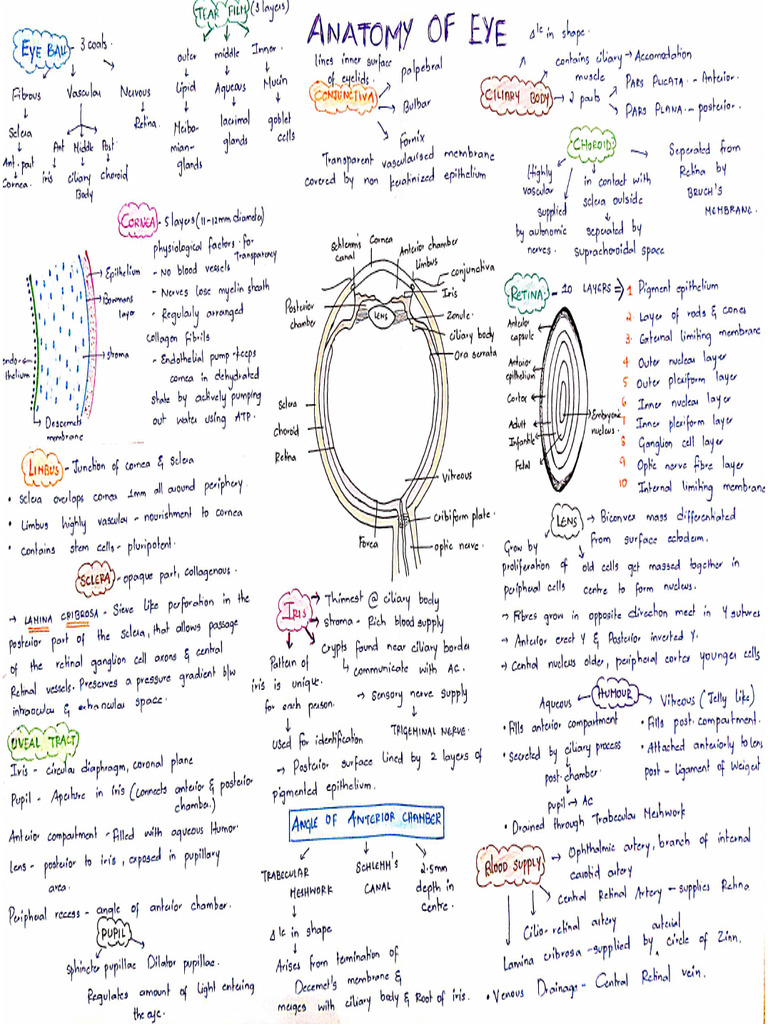 ANATOMY OF EYE
EYE BALL - 3 coats.
Fibrous
Sclera
Ant. part
Cornea.
Vascular
Ant Middle Post
iris ciliary choroid
Body
Nervous
Retina.
TEAR FILM (3 layers)
outer middle Inner.
Lipid Aqueous Mucin
Meibo-
mian-
glands
lacrimal
glands
goblet
cells
lines inner surface
of eyelids.
CONJUNCTIVA
palpebral
Bulbar
Fornix
Transparent vascularised membrane
covered by non keratinized epithelium
CILIARY BODY
Δlc in shape.
contains ciliary → Accomodation
muscle
2 parts
PARS PLICATA - Anterior.
PARS PLANA - posterior.
CHOROID
Highly
vascular
supplied
by autonomic
nerves.
in contact with
sclera outside
seperated by
suprachoroidal space
Seperated from
Retina by
BRUCH'S
MEMBRANE.
CORNEA - 5 layers (11-12mm diameter)
physiological factors for
Transparency
- No blood vessels
- Nerves lose myelin sheath
- Regularly arranged
collagen fibrils
- Endothelial pump - keeps
cornea in dehydrated
state by actively pumping
out water using ATP.
Epithelium
Bowmans
layer
stroma
endo-
thelium
Descemets
membrane
Schlemms
canal
Cornea
Anterior chamber
Limbus
conjunctiva
Iris
Posterior
chamber
LENS
Zonule
ciliary body
Ora serrata
Sclera
Choroid
Retina
Vitreous
Cribiform plate.
Fovea
optic nerve.
RETINA - 10 LAYERS ⇒
1 Pigment epithelium
2 Layer of rods & cones
3 External limiting membrane
4 Outer nuclear layer
5 Outer plexiform layer
6 Inner nuclear layer
7 Inner plexiform layer
8 Ganglion cell layer
9 Optic nerve fibre layer
10 Internal limiting membrane
Anterior
capsule
Anterior
epithelium
Cortex
Adult
Infantile
Fetal
Embryonic
nucleus.
LIMBUS - Junction of cornea & sclera
• Sclera overlaps cornea 1mm all around periphery.
• Limbus highly vascular - nourishment to cornea
• contains stem cells - pluripotent.
SCLERA - opaque part, collagenous.
→ LAMINA CRIBROSA - Sieve like perforation in the
posterior part of the sclera, that allows passage
of the retinal ganglion cell axons & central
Retinal vessels. Preserves a pressure gradient b/w
intraocular & extraocular space.
LENS → Biconvex mass differentiated
from surface ectoderm.
Grow by
proliferation of
peripheral cells
old cells get massed together in
centre to form nucleus.
→ Fibres grow in opposite direction meet in Y sutures
→ Anterior erect Y & Posterior inverted Y.
→ Central nucleus older, peripheral cortex younger cells
IRIS
Thinnest @ ciliary body
stroma - Rich blood supply
Crypts found near ciliary border
communicate with AC.
→ Sensory nerve supply
TRIGEMINAL NERVE.
Pattern of
iris is unique.
for each person.
used for identification
→ Posterior surface lined by 2 layers of
pigmented epithelium.
UVEAL TRACT
Iris - circular diaphragm, coronal plane
Pupil - Aperture in iris (connects anterior & posterior
chamber)
Anterior compartment - filled with aqueous Humor.
Lens - posterior to iris, exposed in pupillary
area.
Peripheral recess - angle of anterior chamber.
PUPIL
Sphincter pupillae Dilator pupillae.
Regulates amount of light entering
the eye.
HUMOUR
Aqueous
• Fills anterior compartment
• Secreted by ciliary process
post. chamber.
pupil → AC
• Drained through Trabecular Meshwork
Vitreous (Jelly like)
• Fills post. compartment.
• Attached anteriorly to lens
post - Ligament of Weigert
ANGLE OF ANTERIOR CHAMBER
TRABECULAR
MESHWORK
Δlc in shape
Arises from termination of
Decemet's membrane &
merges with ciliary body & Root of iris.
SCHLEMM'S
CANAL
2.5mm
depth in
centre.
BLOOD SUPPLY
Ophthalmic artery, branch of internal
carotid artery
Central Retinal Artery - supplies Retina
Cilio-retinal artery
Lamina cribrosa - supplied by arterial circle of Zinn.
• Venous Drainage - Central Retinal vein.